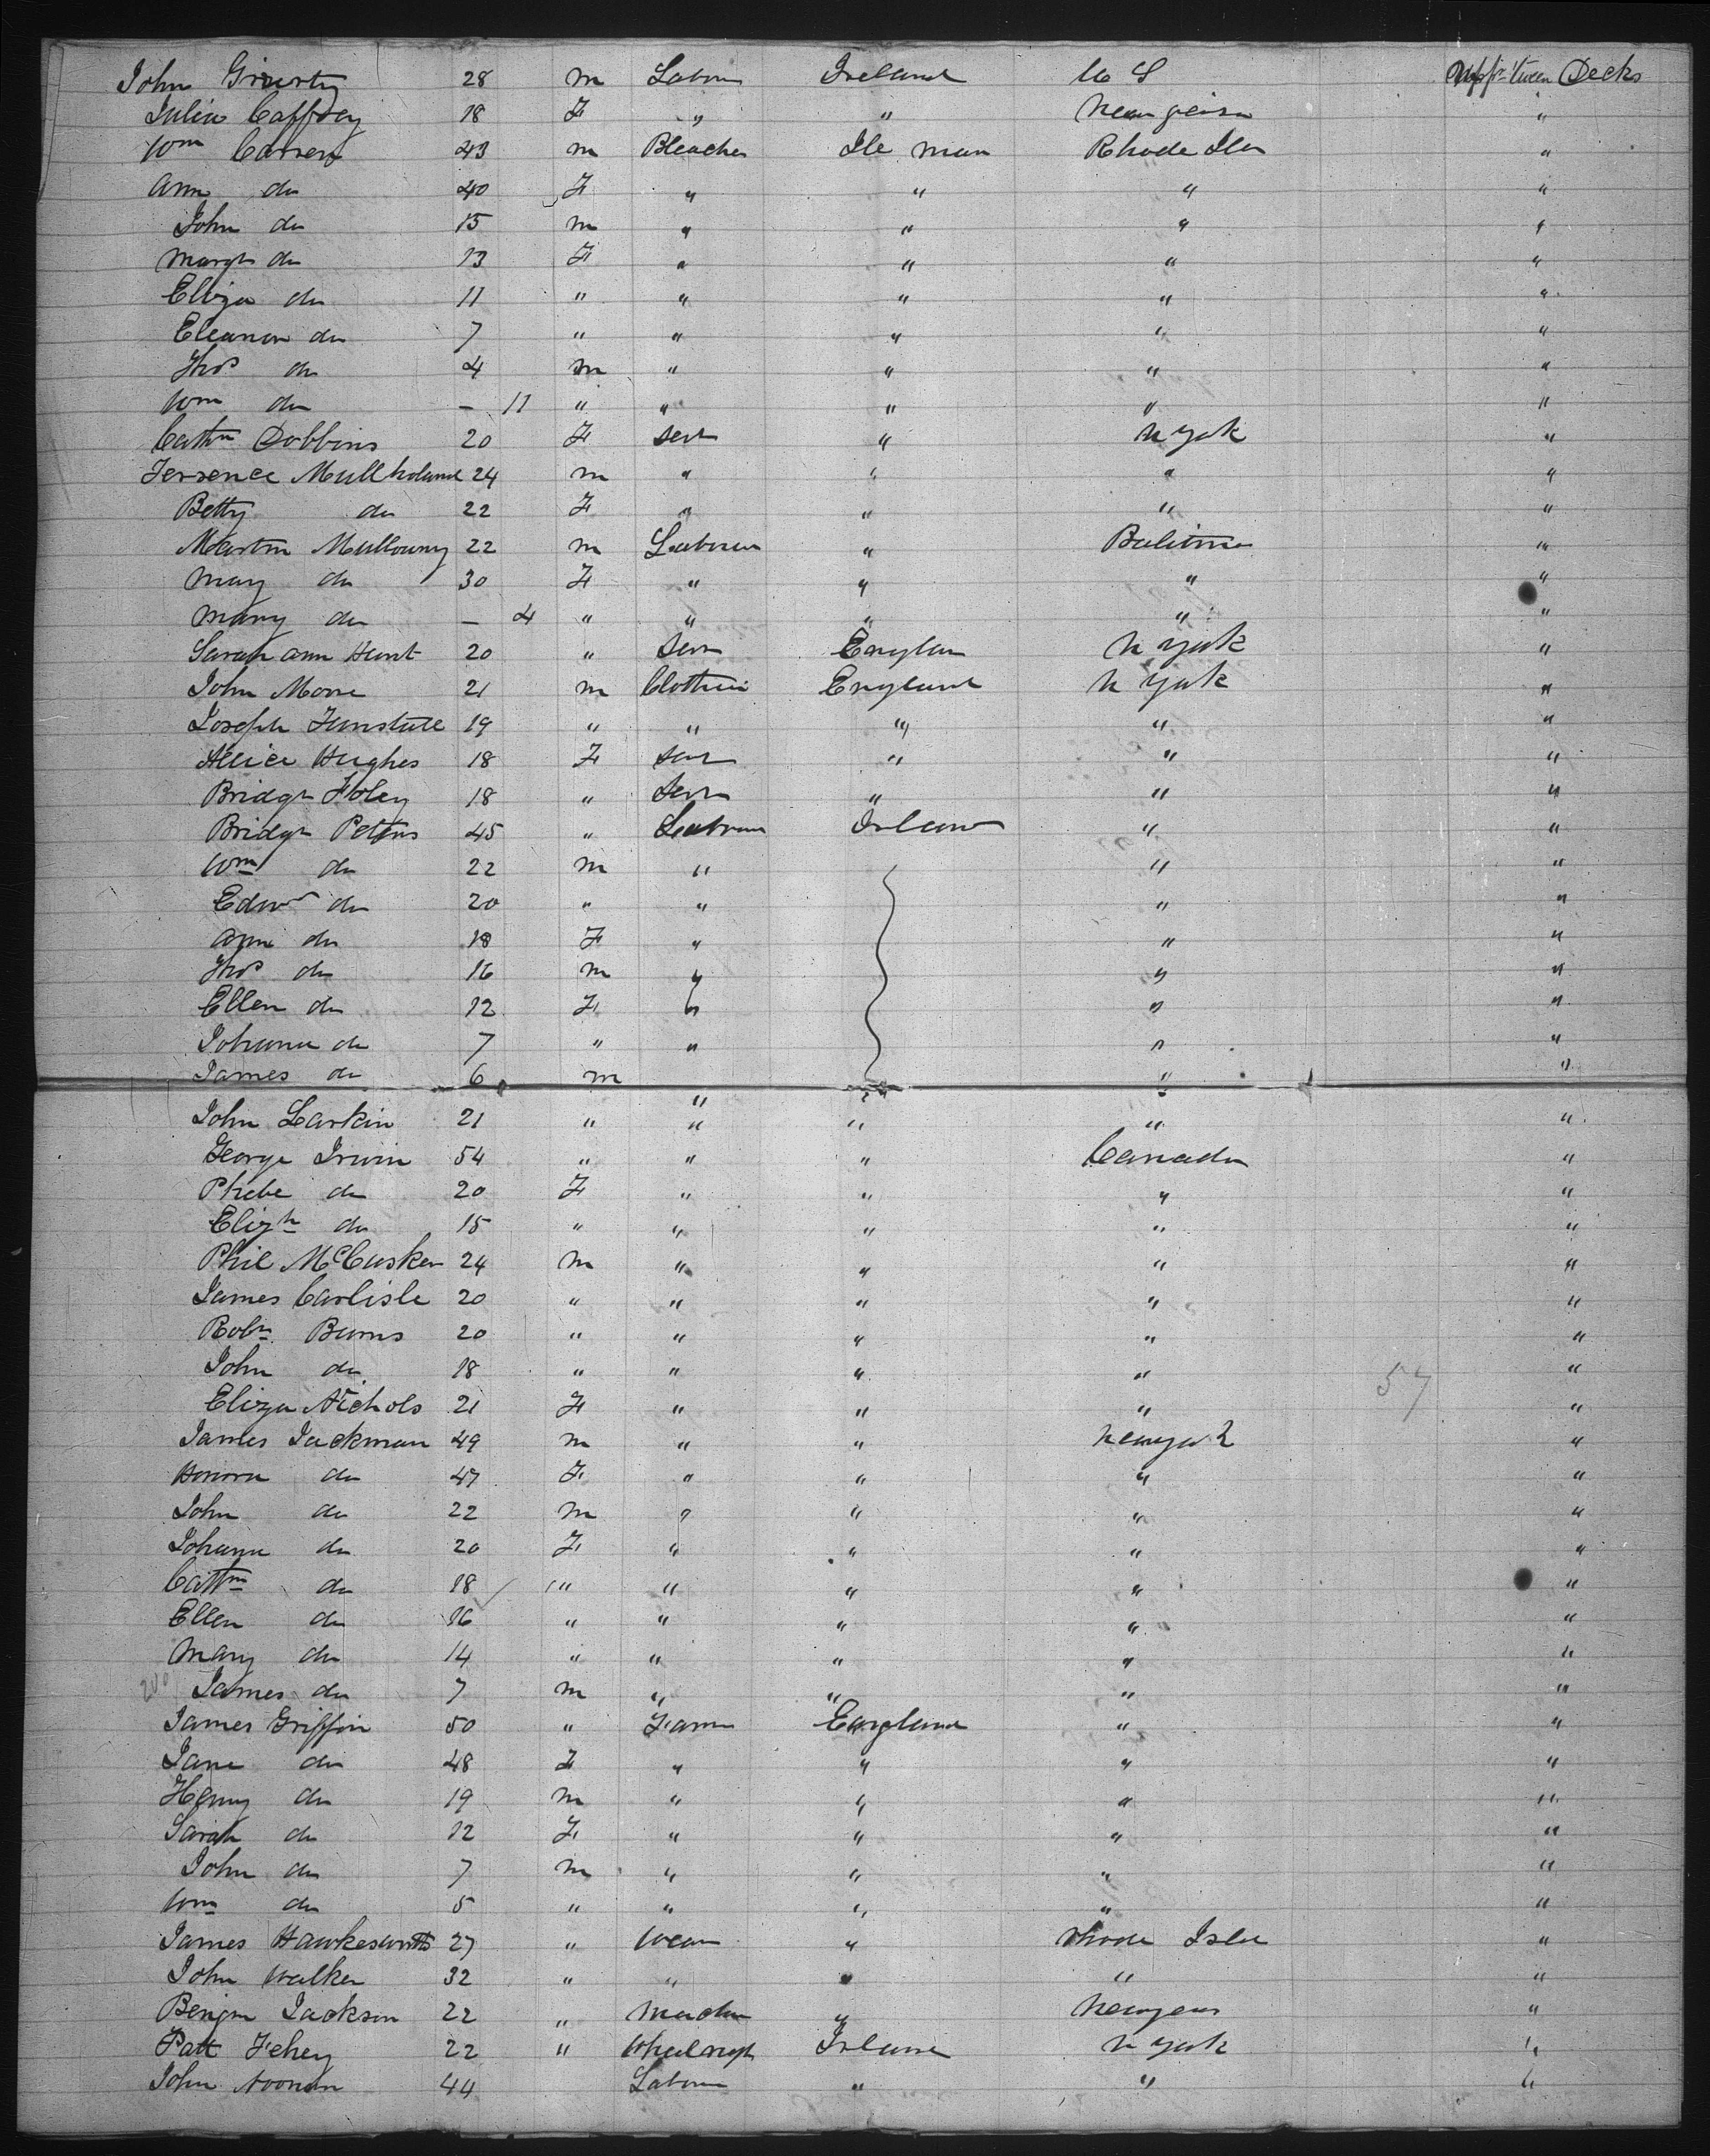 John 28 m Labou Ireland U S Uppr 'tween Decks
Julia Caffrey 18 F " " "
Wm 43 m Bleacher Ile man Rhode Ilan "
Ann do 40 F " " " "
John do 15 m " " " "
Margt do 13 F " " " "
Eliza do 11 " " " " "
Eleanor do 7 " " " " "
Thos do 4 m " " " "
Wm do – 11 " " " " "
Cathn Dobbins 20 F Sert " N York "
Terrence Mullholand 24 m " " " "
Betty do 22 F " " " "
Martin Mullowny 22 m Labourer " Baltimo "
Mary do 30 F " " " "
Mary do – 4 " " " " "
Sarah Ann Hunt 20 " Serv Englan N York "
John Moore 21 m Clothier England N York "
Joseph Tunstall 19 " " " " "
Allice Hughes 18 F Serv " " "
Bridgt Foley 18 " Serv " " "
Bridgt Peters 45 " Labour Irland " "
Wm do 22 m " " "
Edwd do 20 " " " "
Ann do 18 F " " "
Thos do 16 m " " "
Ellen do 12 F " " "
Johanna do 7 " " " "
James do 6 m " " " "
John Larkin 21 " " " " "
George Irwin 54 " " " Canada "
Phebe do 20 F " " " "
Elizh do 15 " " " " "
Phil McCusker 24 m " " " "
James Carlisle 20 " " " " "
Robt Burns 20 " " " " "
John do 18 " " " " 57 "
Eliza Nichols 21 F " " " "
James Jackman 49 m " " Newyork "
Honora do 47 F " " " "
John do 22 m " " " "
Johanna do 20 F " " " "
Cathn do 18 " " " " "
Ellen do 16 " " " " "
Mary do 14 " " " " "
200 James do 7 m " " " "
James Griffin 50 " Farm England " "
Jane do 48 F " " " "
Henry do 19 m " " " "
Sarah do 12 F " " " "
John do 7 m " " " "
Wm do 5 " " " " "
James Hawkesworth 27 " Weav " Rhode Isla "
John Walker 32 " " " " "
Benjm Jackson 22 " " "
Patt Fehey 22 " Wheelwrigh Irland N York "
John Noonan 44 Labour " " "